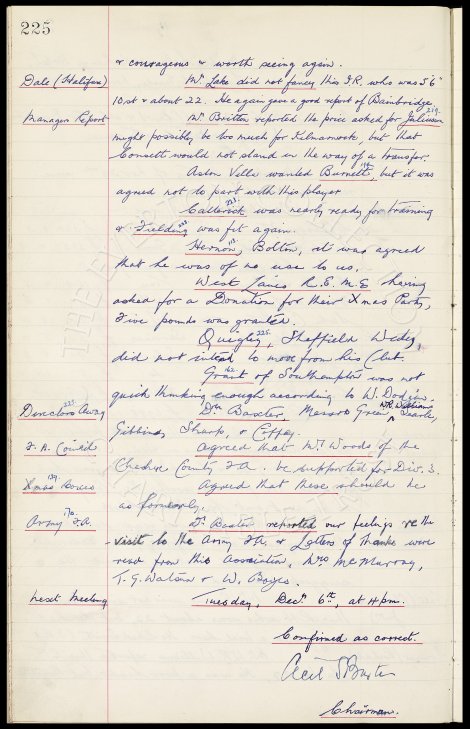 225
& courageous & worth seeing again.
Dale (Halifax) Mr Lake did not fancy this I.R. who was 5'6"
10 st & about 22. He again gave a good report of Bainbridge
Managers Report Mr Britton reported the price asked for Julians
might possibly be too much for Kilmarnock, but that
Consett would not stand in the way of a transfer.
Aston Villa wanted Burnett, but it was
agreed not to part with this player
Catterick was nearly ready for training
& Fielding was fit again.
Hernon, Bolton, it was agreed
that he was of no use to us.
West Lancs R.E.M.E having
asked for a Donation for their Xmas Party,
Five pounds was granted.
Quigley, 225. Sheffield Wedy,
did not intend to move from his Club.
Grant of Southampton was not
quick thinking enough according to W. Dodgin.
Directors Away 225. Dr. Baxter, Messrs Green W.R. Williams Searle,
Gibbins Sharp, & Coffey.
F.A. Council Agreed that Mr Woods of the
Cheshire County F.A. be supported for Div. 3.
Xmas Boxes Agreed that these should be
as formerly.
Army F.A. Dr. Baxter reported our feelings re the
visit to the Army F.A. & Letters of thanks were
read from this Association, Mrs McMurray,
T.G. Watson & W. Boyes.
Next Meeting Tuesday, Decr. 6th, at 4pm.
Confirmed as correct.
Cecil S Baxter
Chairman.